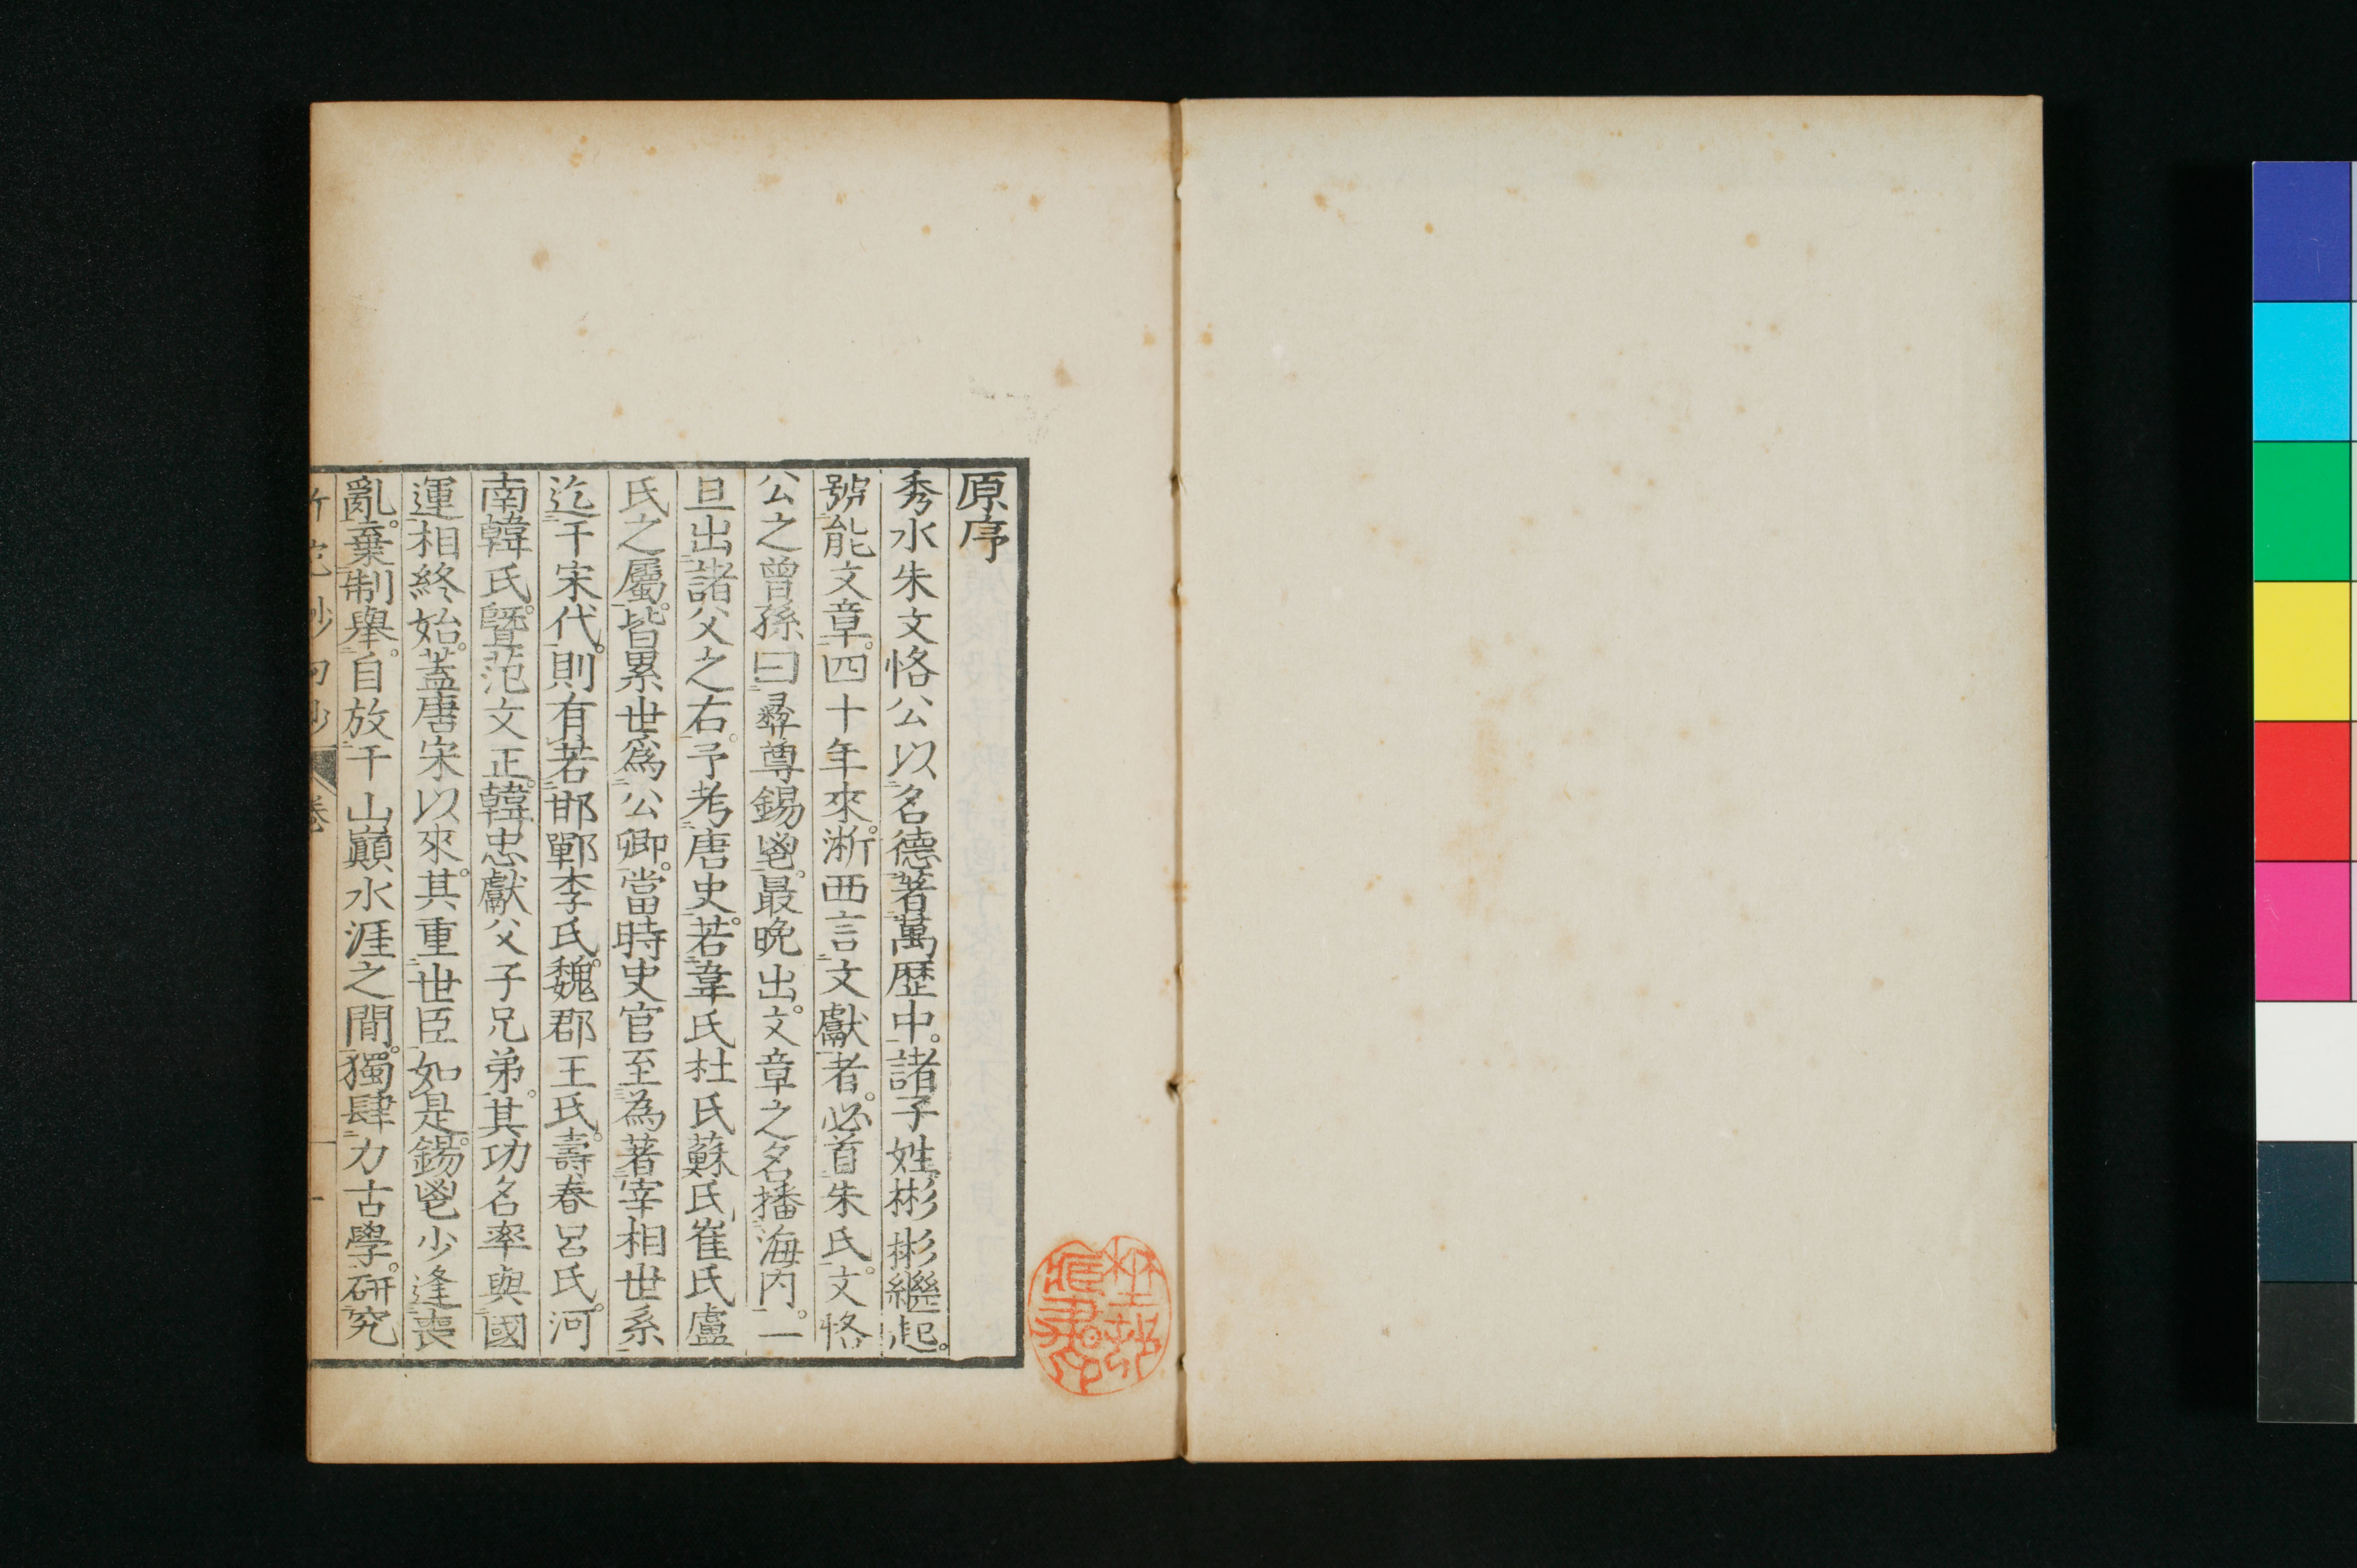 原序
秀水朱文恪公以名德著萬歷中。諸子姓彬彬繼起。
號能文章。四十年來。淅西言文獻者。必首朱氏。文恪
公之曾孫曰彝尊錫鬯。最晩出。文章之名播海内。一
旦出諸父之右。予考唐史。若韋氏杜氏蘇氏崔氏盧
氏之屬。皆累世爲公卿。當時史官至為著宰相世系
迄于宋代。則有若邯鄲李氏。魏郡王氏。壽春呂氏。河
南韓氏。曁范文正。韓忠獻父子兄弟。其功名率與國
運相終始。蓋唐宋以來。其重世臣如是。錫鬯少逢喪
亂。棄制舉。自放于山巓水涯之間。獨肆力古學。研究